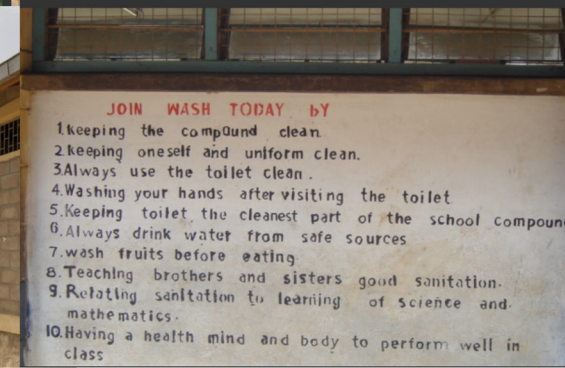 JOIN WASH TODAY bY
1.keeping the compound clean
2.keeping oneself and uniform clean.
3.Always use the toilet clean.
4.Washing your hands after visiting the toilet
5.Keeping toilet the cleanest part of the school compoun
6.Always drink water from safe sources
7.wash fruits before eating
8.Teaching brothers and sisters good sanitation.
9.Relating sanitation to learning of science and
mathematics.
10.Having a health mind and body to perform well in
class